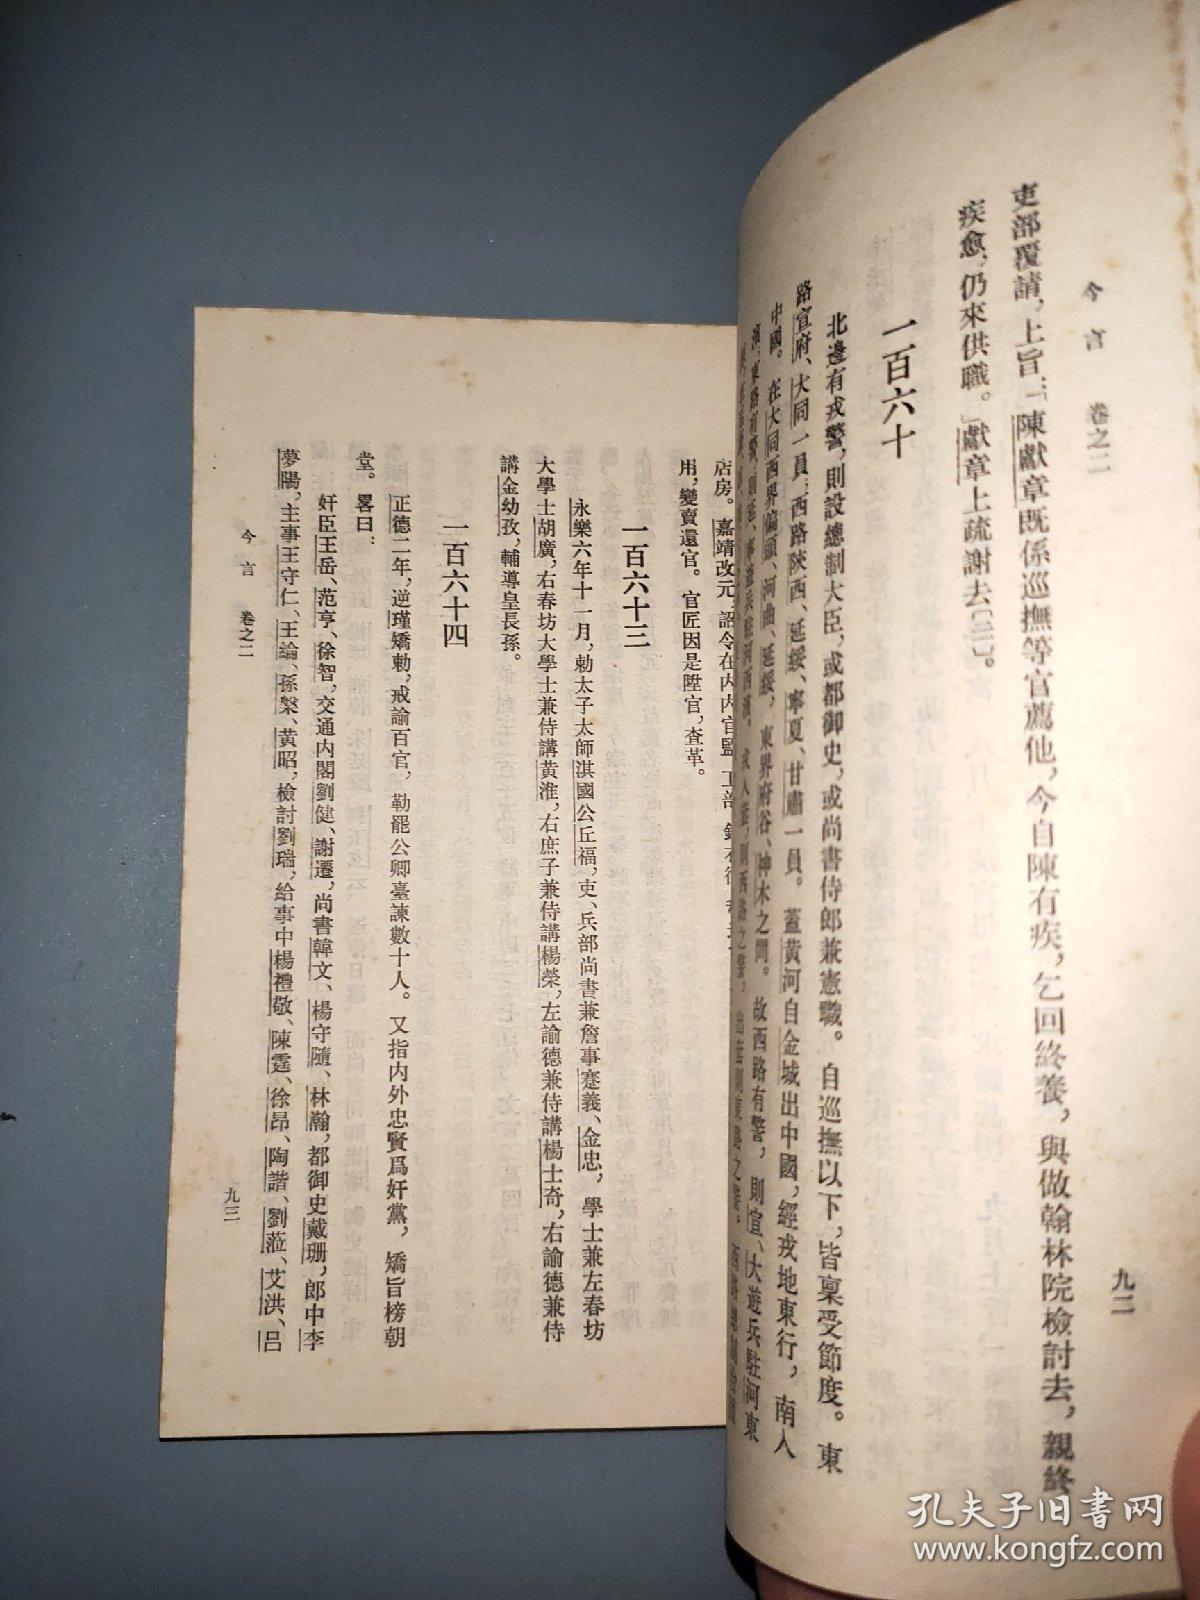 今言 卷之二
九二
吏部覆請，上旨：「陳獻章既係巡撫等官薦他，今自陳有疾，乞回終養，與做翰林院檢討去，親終
疾愈，仍來供職。」獻章上疏謝去〔三〕。
一百六十
北邊有戎警，則設總制大臣，或都御史，或尚書侍郎兼憲職。自巡撫以下，皆稟受節度。東
路宣府、大同一員；西路陝西、延綏、寧夏、甘肅一員。蓋黃河自金城出中國，經戎地東行，南入
中國。在大同西界偏頭、河曲、延綏，東界府谷、神木之間。故西路有警，則宣、大遊兵駐河東
東路有警，則延、寧遊兵駐河西
店房。嘉靖改元，詔令在内内官監、工部
用，變賣還官。官匠因是陞官，查革。
一百六十三
永樂六年十一月，勅太子太師淇國公丘福，吏、兵部尚書兼詹事蹇義、金忠，學士兼左春坊
大學士胡廣，右春坊大學士兼侍講黃淮，右庶子兼侍講楊榮，左諭德兼侍講楊士奇，右諭德兼侍
講金幼孜，輔導皇長孫。
一百六十四
正德二年，逆瑾矯勅，戒諭百官，勒罷公卿臺諫數十人。又指内外忠賢爲奸黨，矯旨榜朝
堂。畧曰：
奸臣王岳、范亨、徐智，交通内閣劉健、謝遷，尚書韓文、楊守隨、林瀚，都御史戴珊，郎中李
夢陽，主事王守仁、王綸、孫槃、黃昭，檢討劉瑞，給事中楊禮敬、陳霆、徐昂、陶諧、劉蒞、艾洪、呂
今言 卷之二
九三
孔夫子旧书网
www.kongfz.com